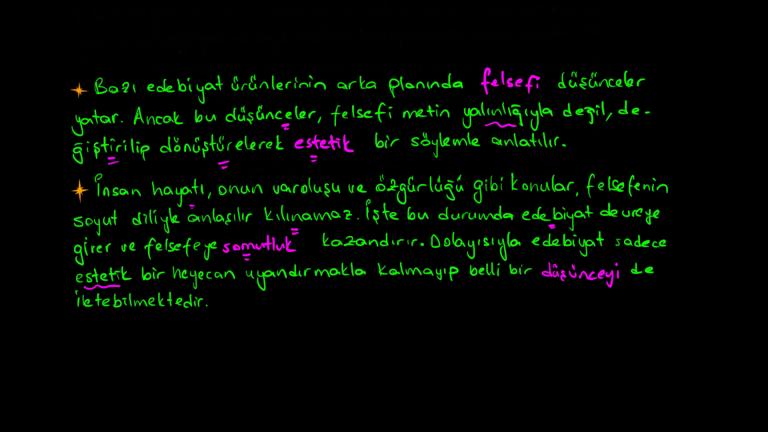 Bazı edebiyat ürünlerinin arka planında felsefi düşünceler
yatar. Ancak bu düşünceler, felsefi metin yalınlığıyla değil, de-
ğiştirilip dönüştürelerek estetik bir söylemle anlatılır.
İnsan hayatı, onun varoluşu ve özgürlüğü gibi konular, felsefenin
soyut diliyle anlaşılır kılınamaz. İşte bu durumda edebiyat devreye
girer ve felsefeye somutluk kazandırır. Dolayısıyla edebiyat sadece
estetik bir heyecan uyandırmakla kalmayıp belli bir düşünceyi de
iletebilmektedir.